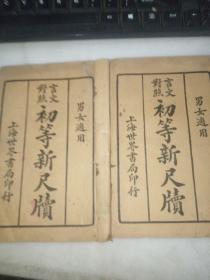 男女適用
言文對照
初等新尺牘
上海世界書局印行
男女適用
言文對照
初等新尺牘
上海世界書局印行